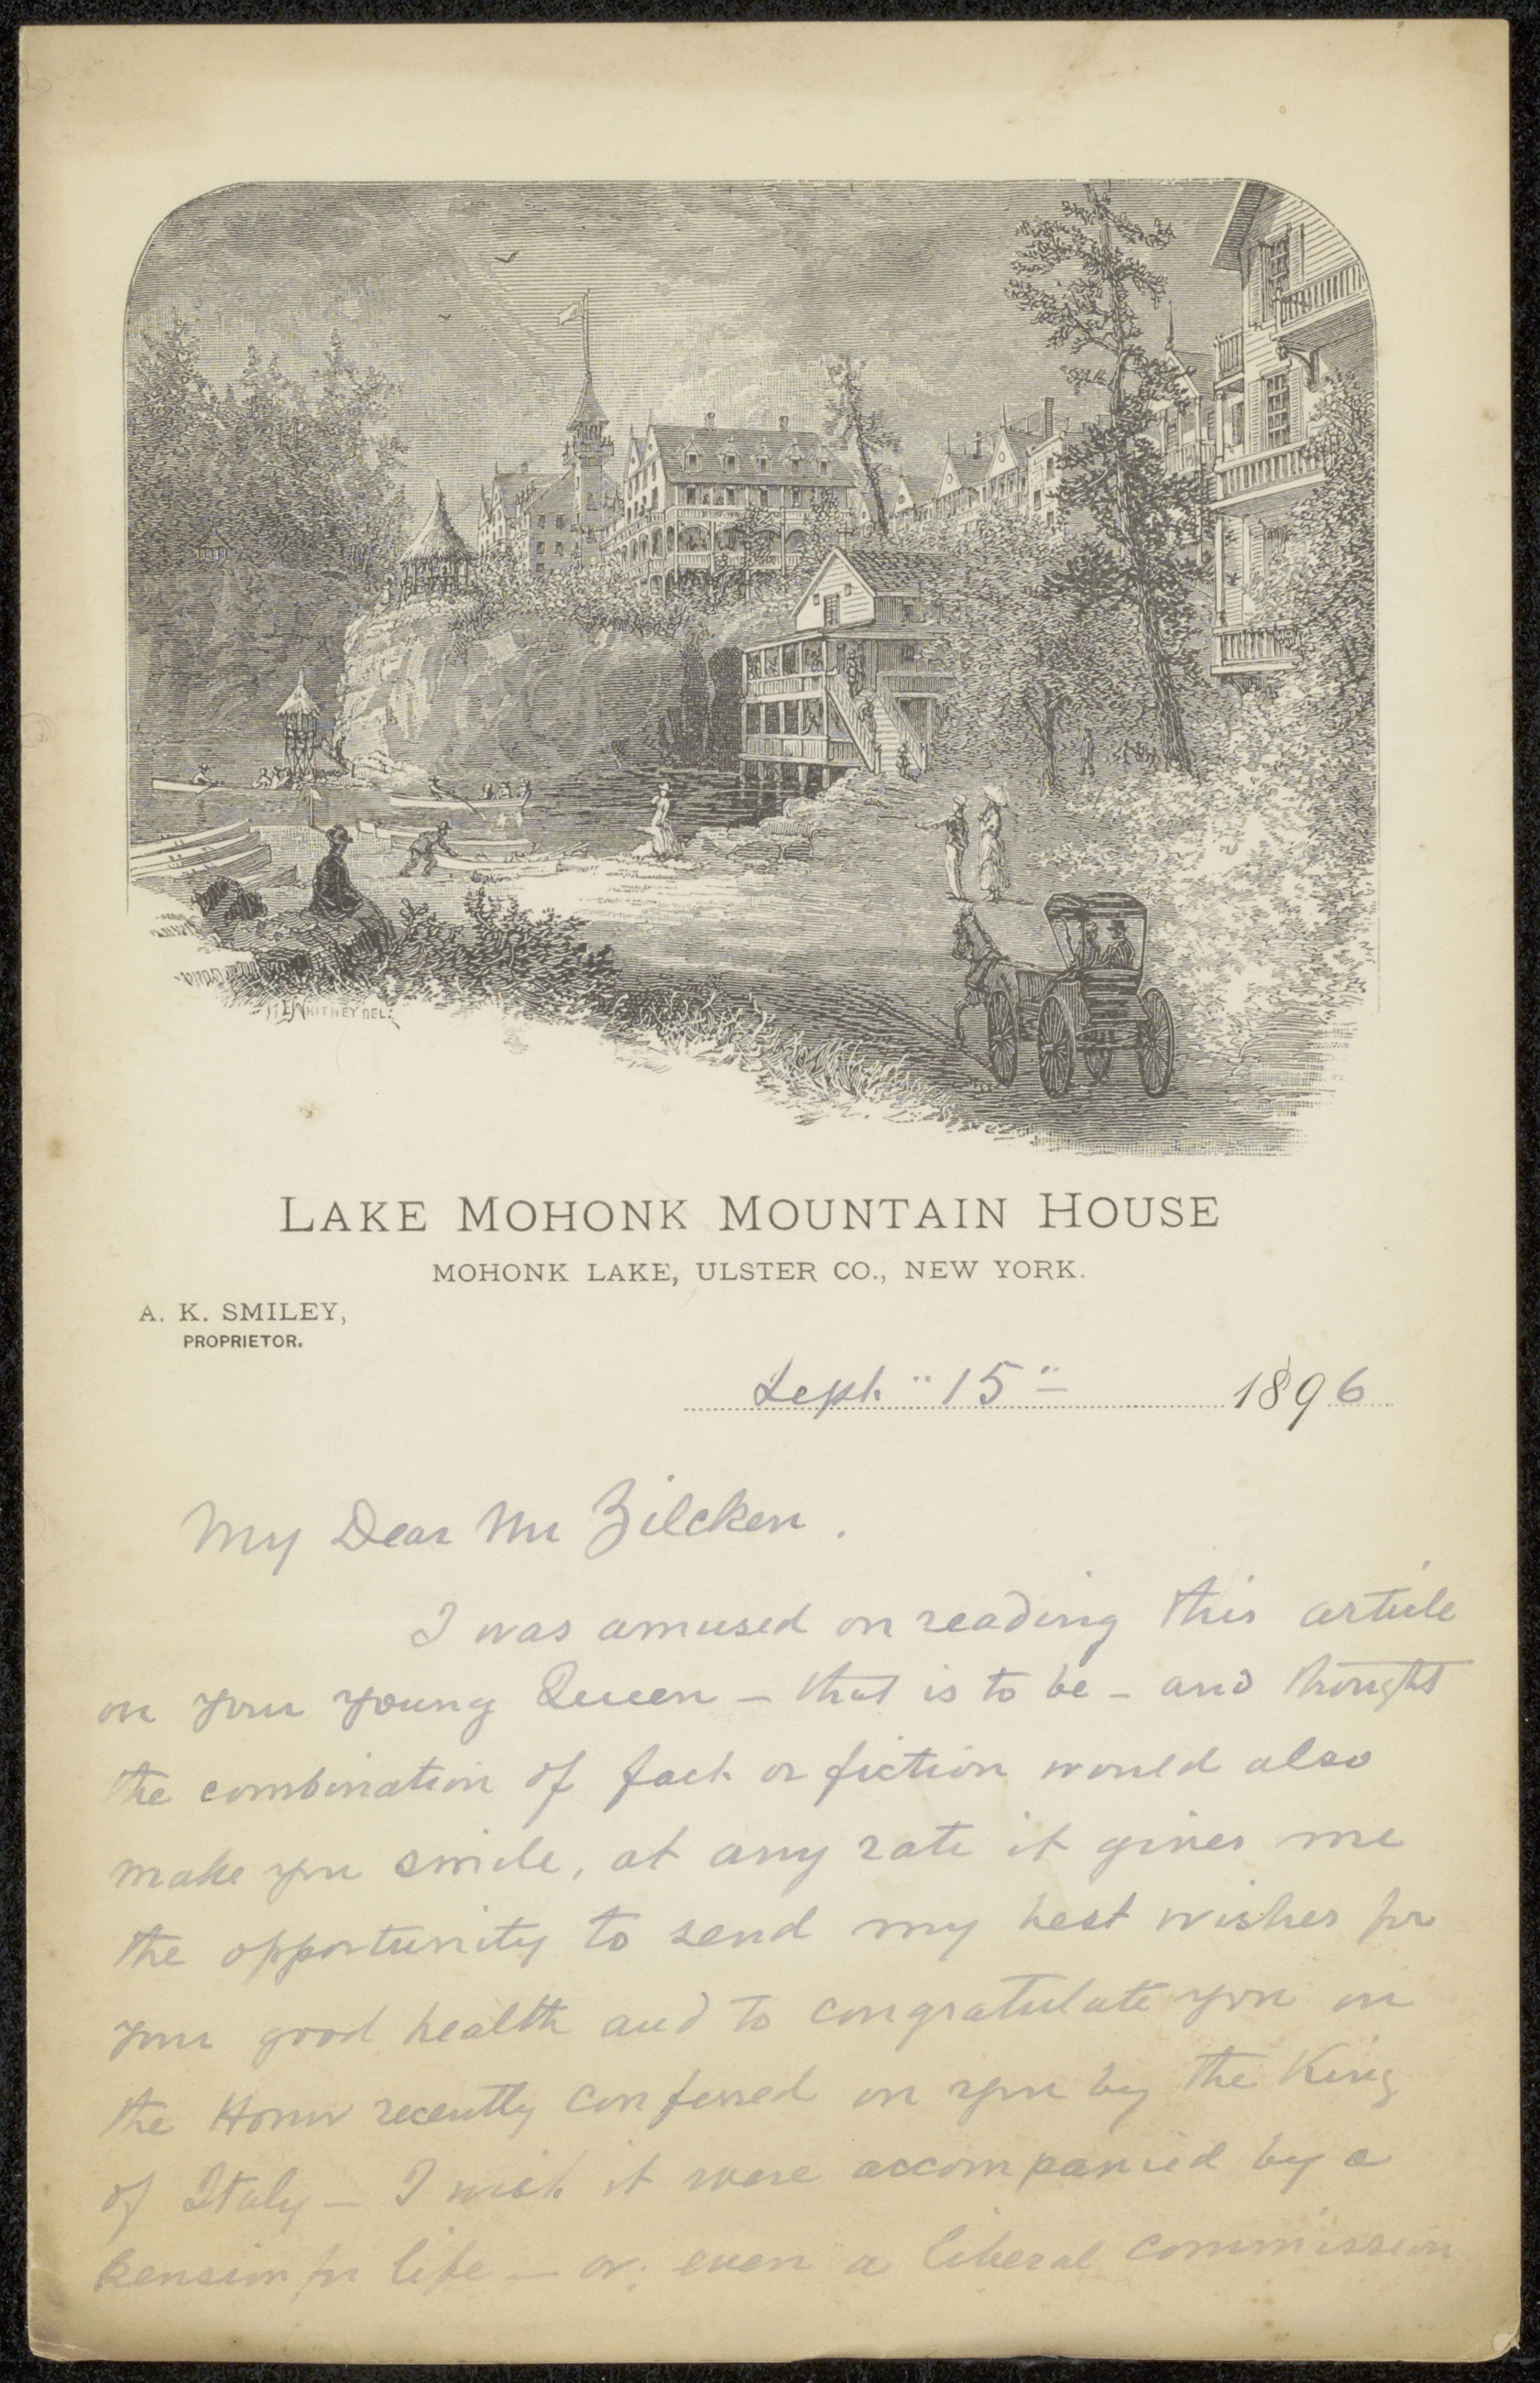 WHITNEY DEL.
LAKE MOHONK MOUNTAIN HOUSE
MOHONK LAKE, ULSTER CO., NEW YORK.
A. K. SMILEY,
PROPRIETOR.
Sept. " 15 " 1896
My Dear Mr Zilcken.
I was amused on reading this article
on your young Queen – that is to be – and thought
the combination of fact or fiction would also
make you smile, at any rate it gives me
the opportunity to send my best wishes for
your good health and to congratulate you on
the Honor recently conferred on you by the King
of Italy – I wish it were accompanied by a
pension for life – or, even a liberal commission